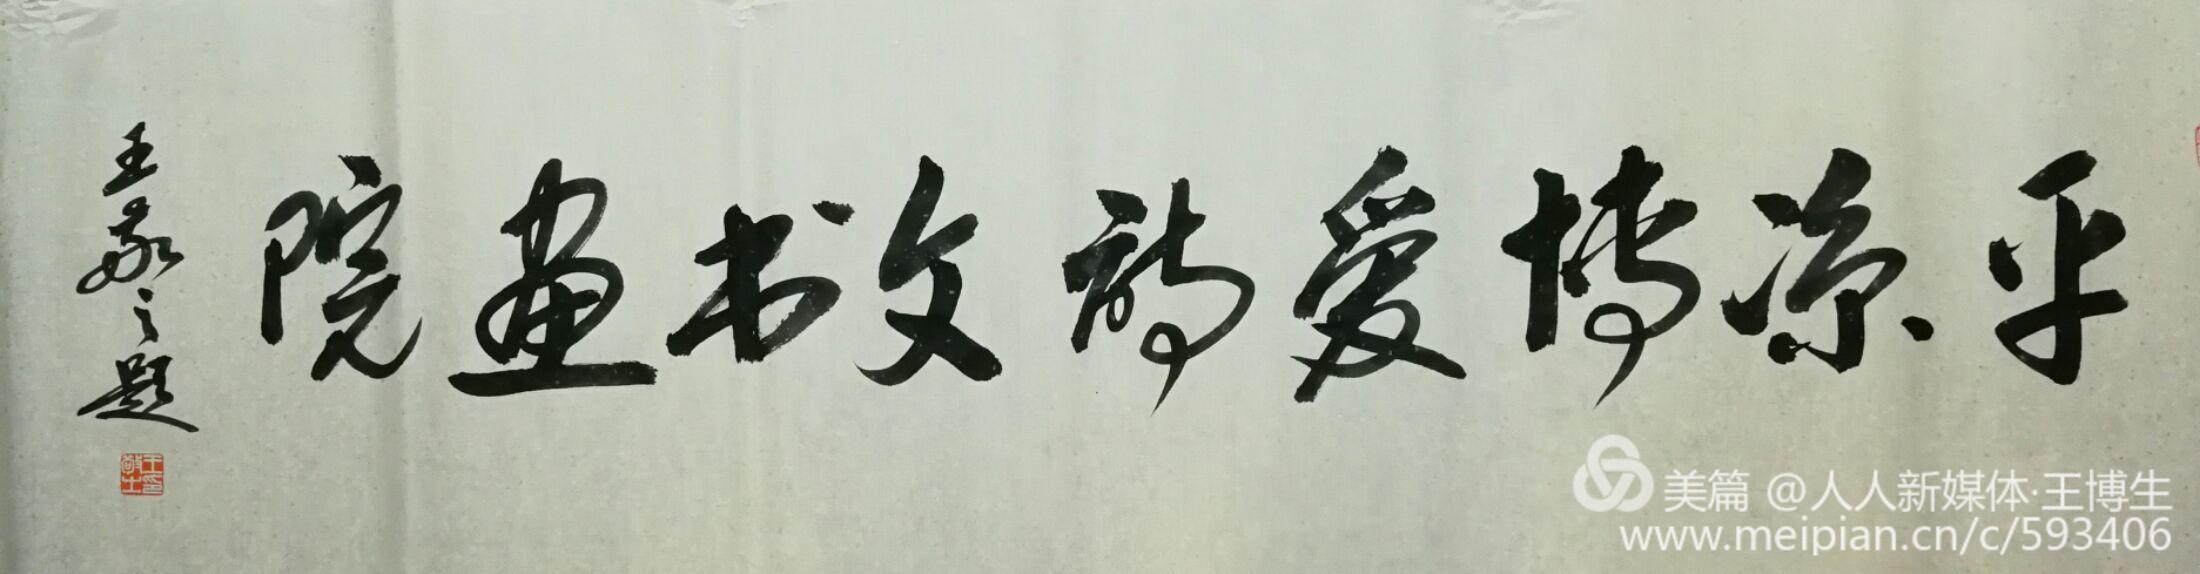 平凉博爱诗文书画院
王敬之题
王敬之印
美篇 @人人新媒体·王博生
www.meipian.cn/c/593406